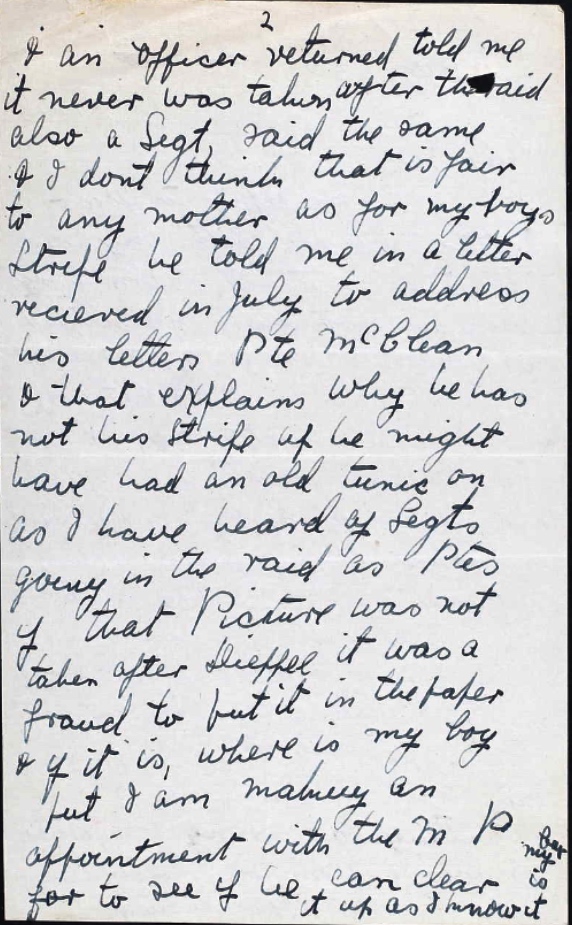 2
& an Officer returned told me
it never was taken after the raid
also a Segt, said the same
& I dont think that is fair
to any mother as for my boys
Stripe he told me in a letter
recieved in July to address
his letters Pte McClean
& that explains why he has
not his Stripe up he might
have had an old tunic on
as I have heard of Segts
going in the raid as Ptes
if that Picture was not
taken after Dieppe it was a
fraud to put it in the paper
& if it is, where is my boy
but I am making an
appointment with the M P
for to see if he can clear
it up as I know it
is
my
boy